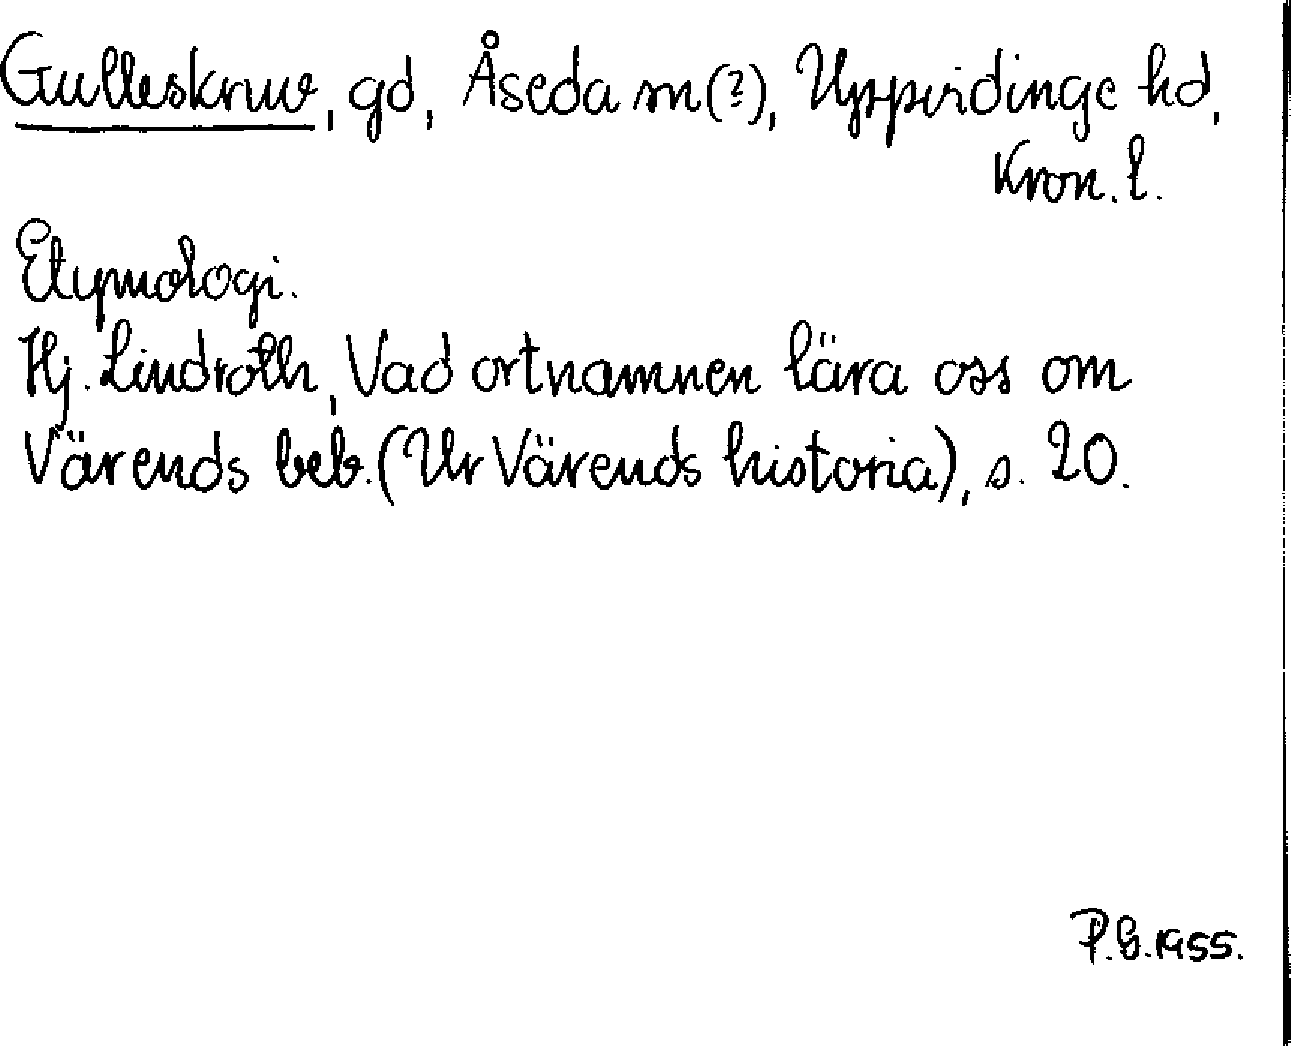 Gulleskruv, gd, Åseda sn(?), Uppvidinge hd,
Kron. l.
Etymologi.
Hj. Lindroth, Vad ortnamnen lära oss om
Värends beb. (Ur Värends historia), s. 20.
P.G. 1955.